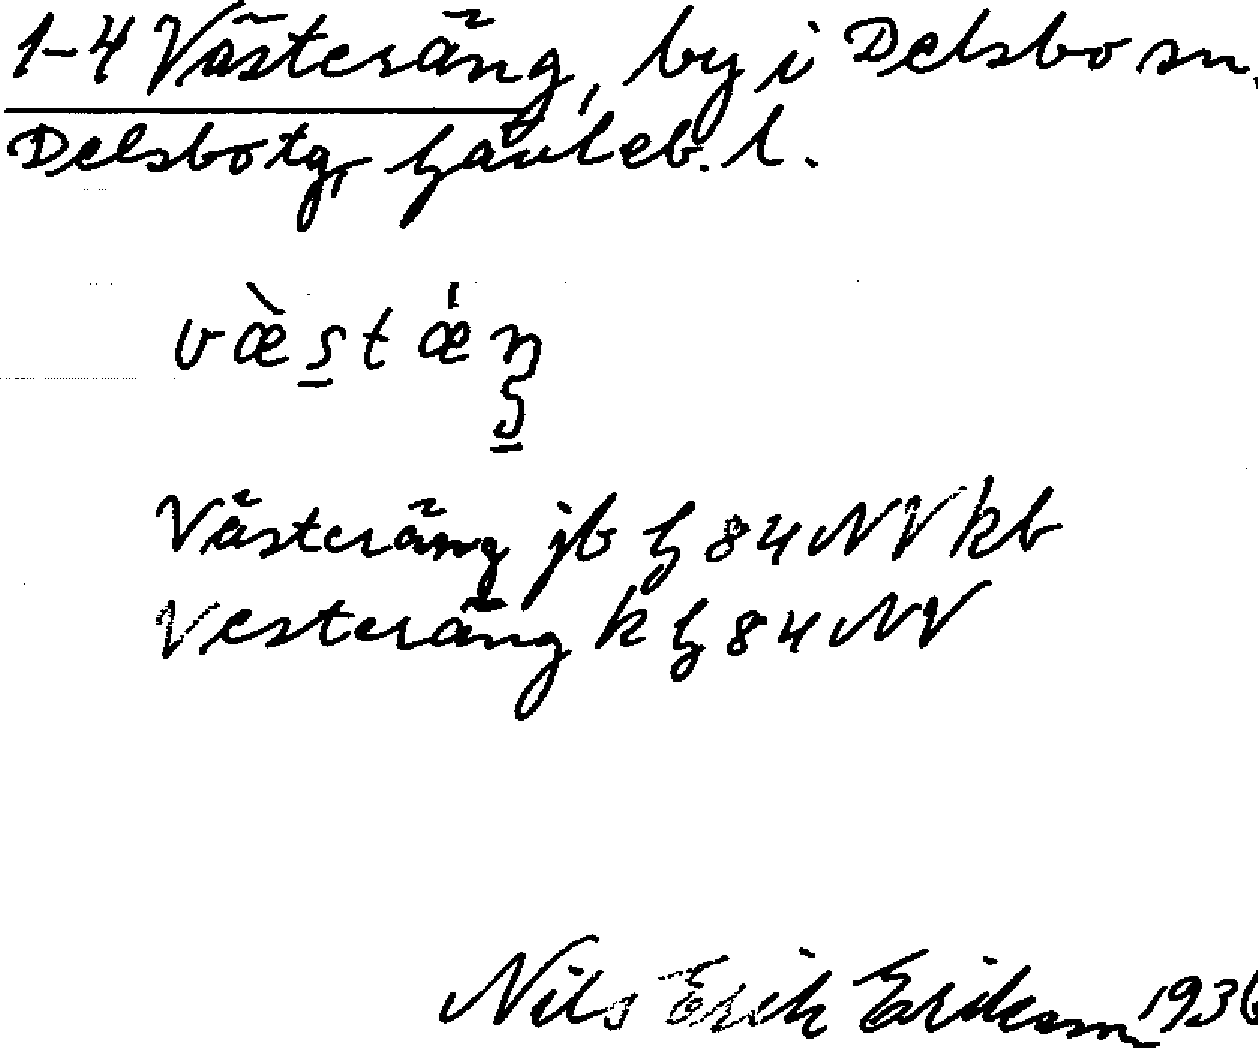 1-4 Västeräng, by i Delsbo sn,
Delsbo tg, Gävleb. l.
Västeräng jb h 84 NV kb
Vesteräng k h 84 NV
Nils Erik Erikson 1936